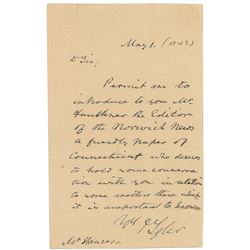 May 1. (1843)
D Sir,
Permit me to
introduce to you Mr
Faulkner the Editor
of the Norwich News
a friendly paper of
Connecticut who desires
to hold some conversa
tion with you in relation
to some matters there which
it is important to know
J Tyler
Mr Spencer